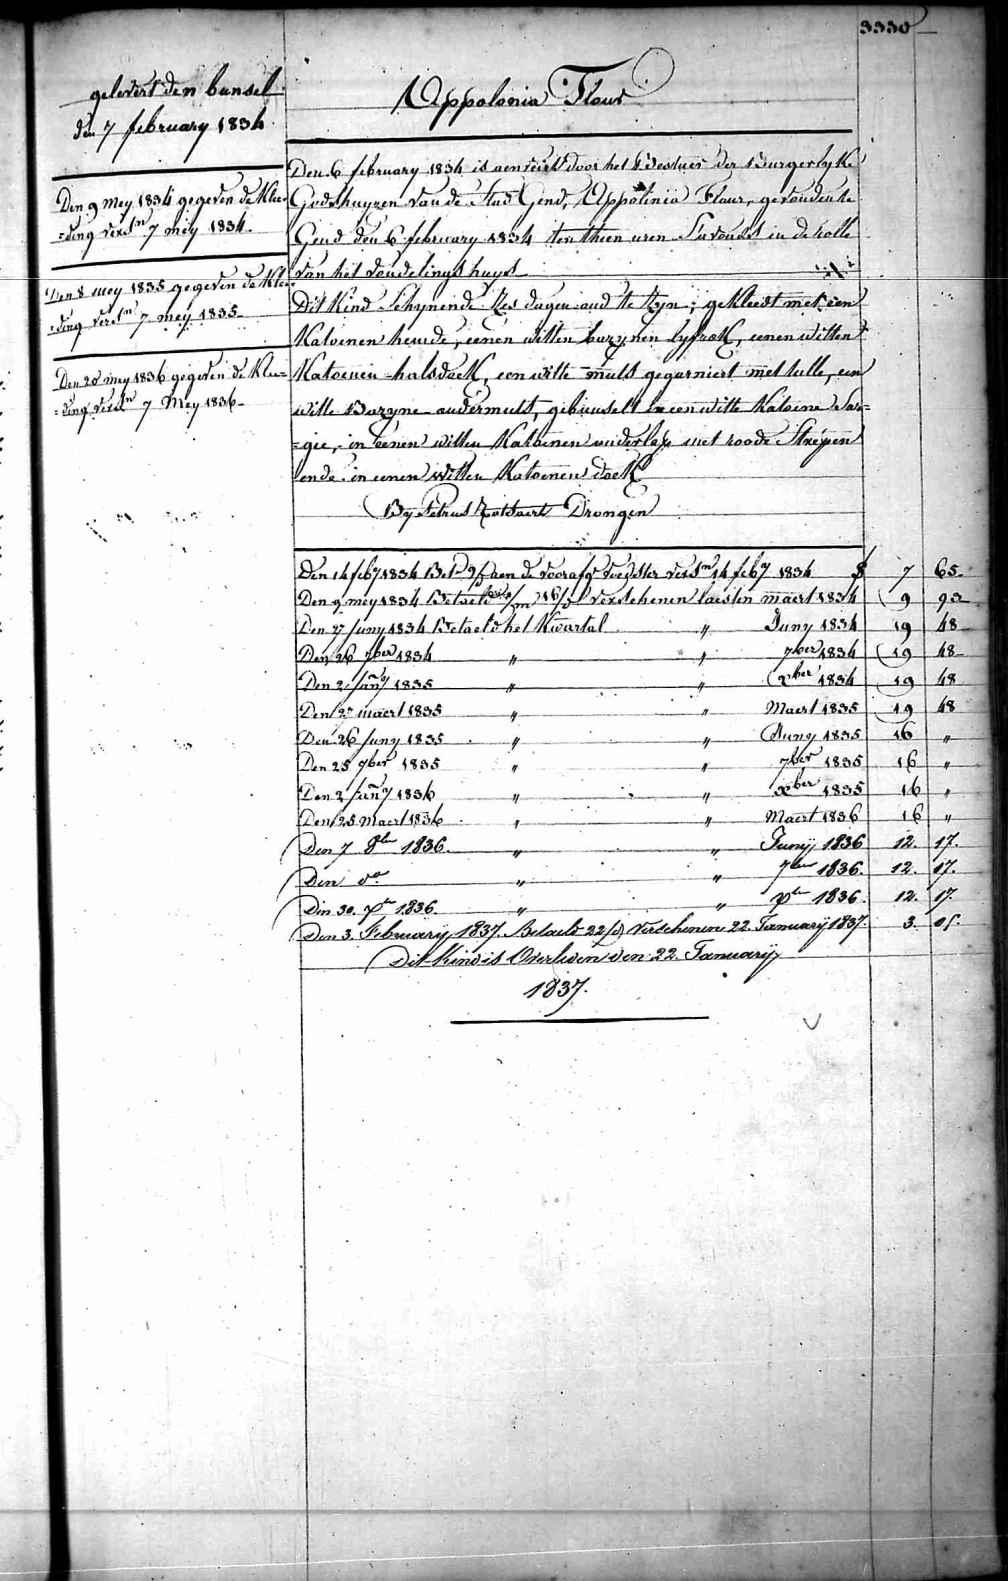 3330
gelevert den bunsel
den 7 february 1834
Den 9 mey 1834 gegeven de Klee=
=ding versn 7 mey 1834.
Den 8 mey 1835 gegeven de Klee
=ding versn 7 mey 1835
Den 20 mey 1836 gegeven de Klee=
=ding versn 7 Mey 1836
Appolonia Flour
Den 6 february 1834 is aenveirt door het Bestuer der Burgerlyke
Godshuyzen van de Stad Gend, Appolinia Flour, gevonden te
Gend den 6 february 1834 ten thien uren S'avonds in de rolle
van het vondelings huys
Dit Kind Schynende Zes dagen oud te Zyn; gekleedt met een
Katoenen hemde, eenen witten bazynen lyfrok, eenen witten
Katoenen halsdoek, een witte muts gegarniert met tulle, een
witte Bazyne ondermuts, gebunselt in een witte Katoene Sar=
=gie, in eenen witten Katoenen luiderlap met roode Strepen
ende in eenen witten Katoenen doek
By Petrus Drongen
Den 14 feby 1834 Bet 9/d aen de voorafg voedster versn 14 feby 1834 7 65
Den 9 mey 1834 Betaelt /m 16/d verschenen laesten maert 1834 9 92
Den 27 Juny 1834 Betaeld het Kwartal " Juny 1834 19 48
Den 26 7ber 1834 " " 7ber 1834 19 48
Den 2 Jany 1835 " " xber 1834 19 48
Den 27 maert 1835 " " Maert 1835 19 48
Den 26 Juny 1835 " " Juny 1835 16 "
Den 25 7ber 1835 " " 7ber 1835 16 "
Den 2 Jany 1836 " " xber 1835 16 "
Den 25 Maert 1836 " " Maert 1836 16 "
Den 7 8ber 1836. " " Junij 1836 12. 17.
Den do " " 7ber 1836. 12. 17.
Den 30. xber 1836. " " xber 1836. 12. 17.
Den 3. February 1837. Betaeld 22/d verschenen 22 Januarij 1837. 3. 05.
Dit Kind is Overleden den 22 Januarij
1837.